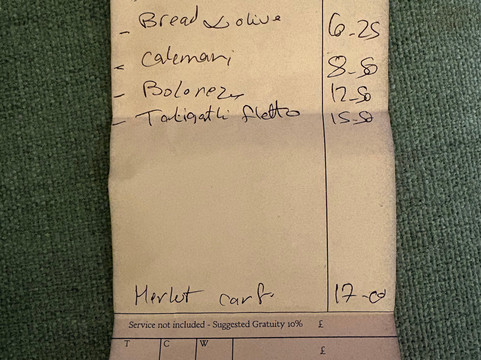 - Bread & olive 6-25
- Calemari 8-50
- Bolonez 12-50
- Taligatli filetto 15-50
Merlot carf. 17-00
Service not included - Suggested Gratuity 10% £
T C W £